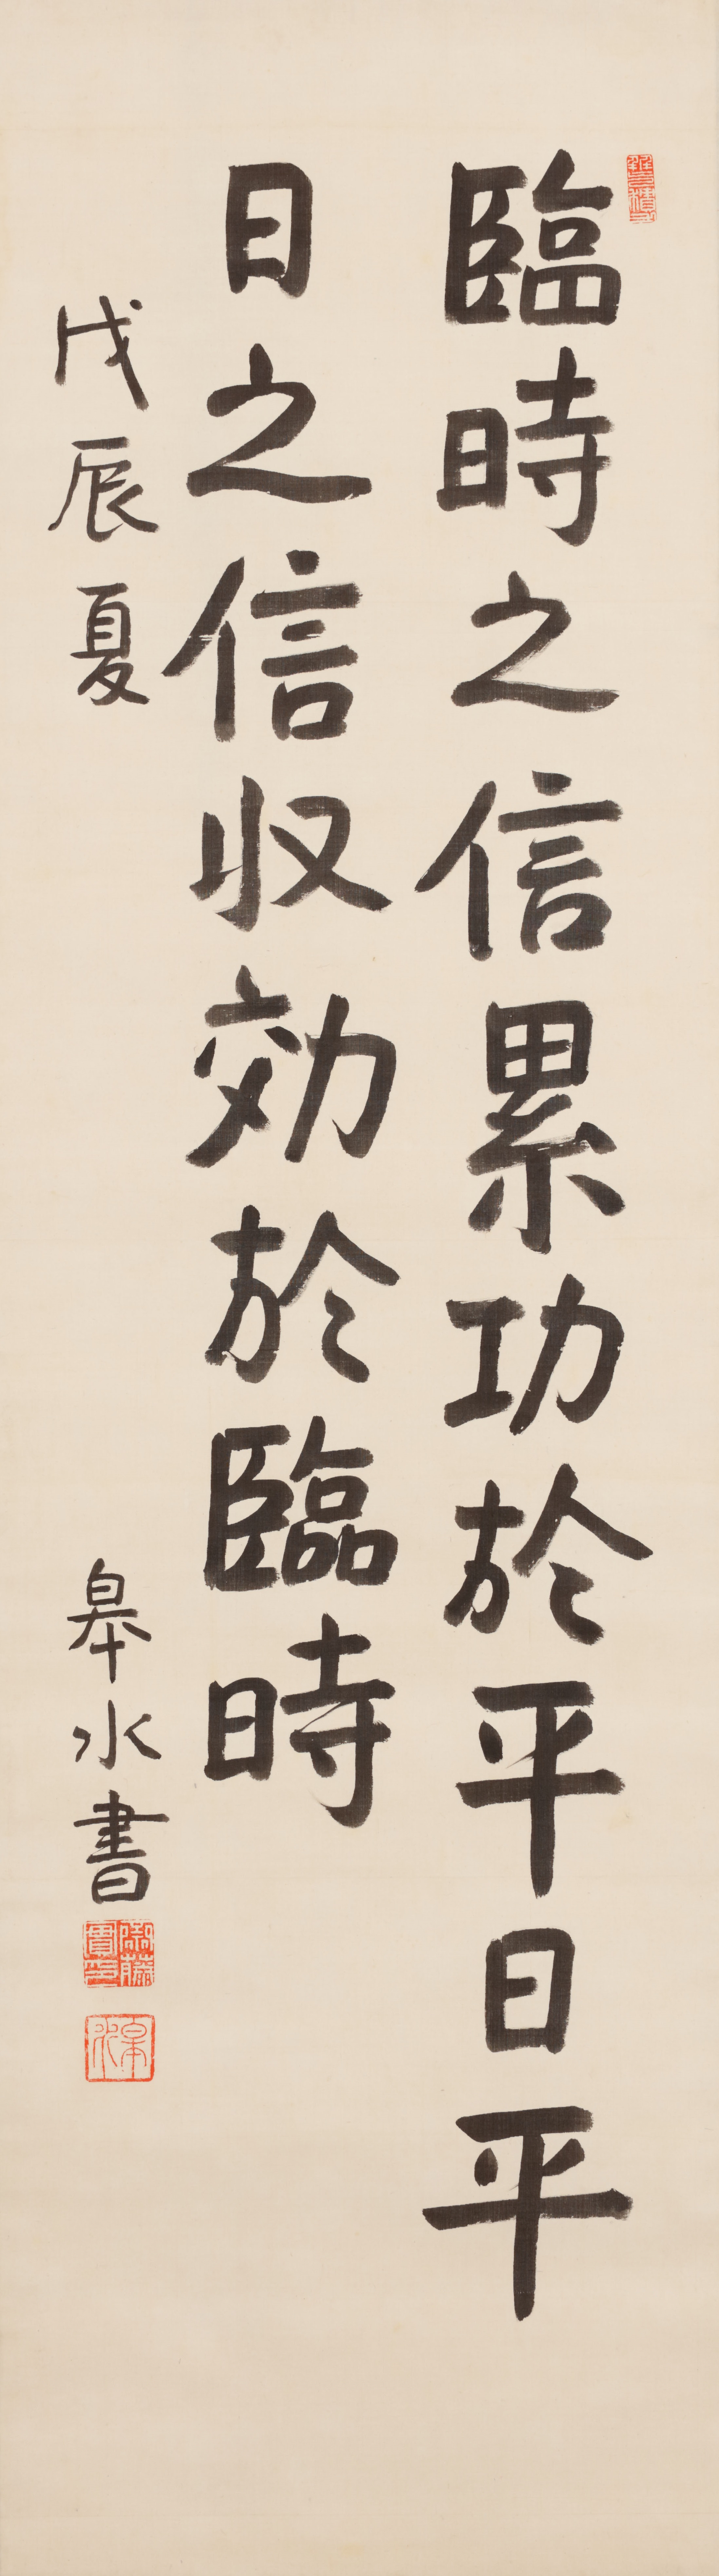 臨時之信累功於平日平
日之信収効於臨時
戊辰夏
皋水書